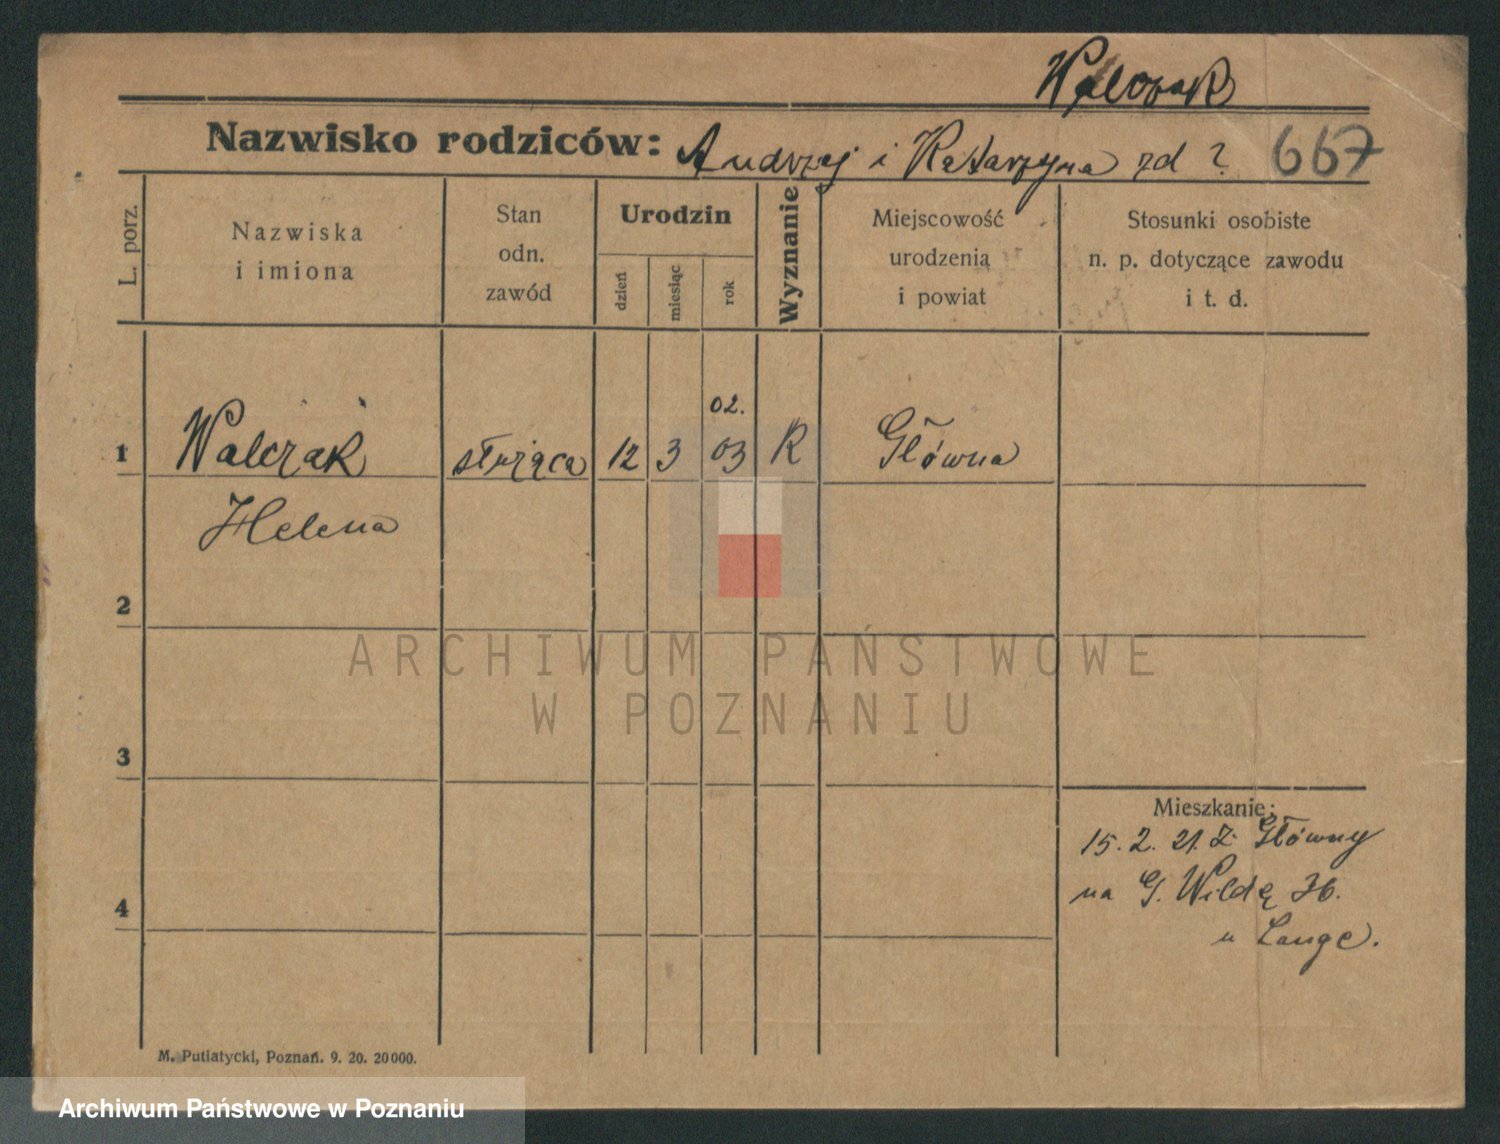 Walczak
Nazwisko rodziców: Andrzej i Katarzyna zd ? 667
L. porz.
Nazwiska
i imiona
Stan
odn.
zawód
Urodzin
dzień
miesiąc
rok
Wyznanie
Miejscowość
urodzenia
i powiat
Stosunki osobiste
n. p. dotyczące zawodu
i t. d.
02.
1 Walczak służąca 12 3 03 R Główna
Helena
2
3
4
Mieszkanie:
15. 2. 21. Z Główny
na G. Wildę 76.
u Lange.
M. Putiatycki, Poznań. 9. 20. 20000.
ARCHIWUM PAŃSTWOWE
W POZNANIU
Archiwum Państwowe w Poznaniu